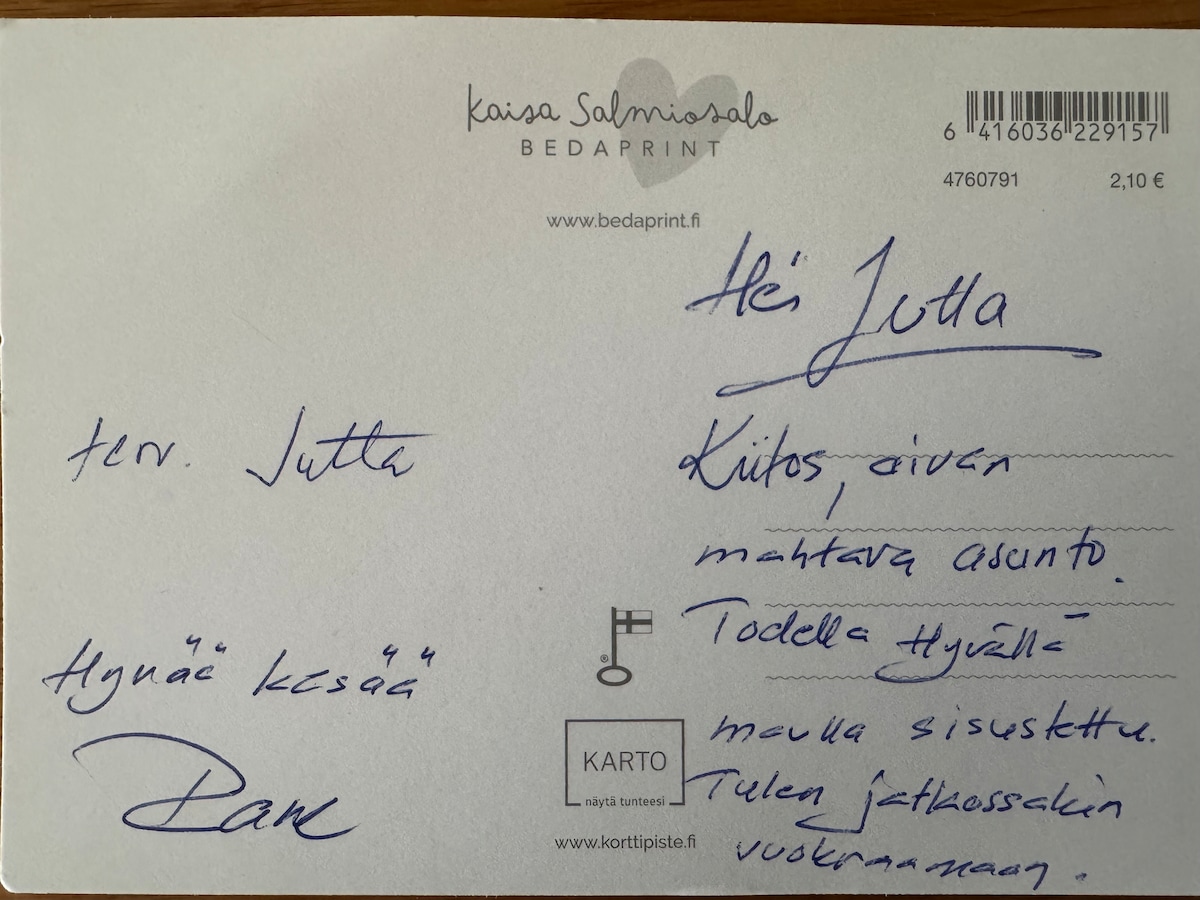 Kaisa Salmiosalo
BEDAPRINT
www.bedaprint.fi
6 416036 229157
4760791 2,10 €
Hei Jutta
Kiitos, aivan
mahtava asunto.
Todella Hyvällä
maulla sisustettu.
Tulen jatkossakin
vuokraamaan.
terv. Jutta
Hyvää kesää
®
KARTO
näytä tunteesi
www.korttipiste.fi